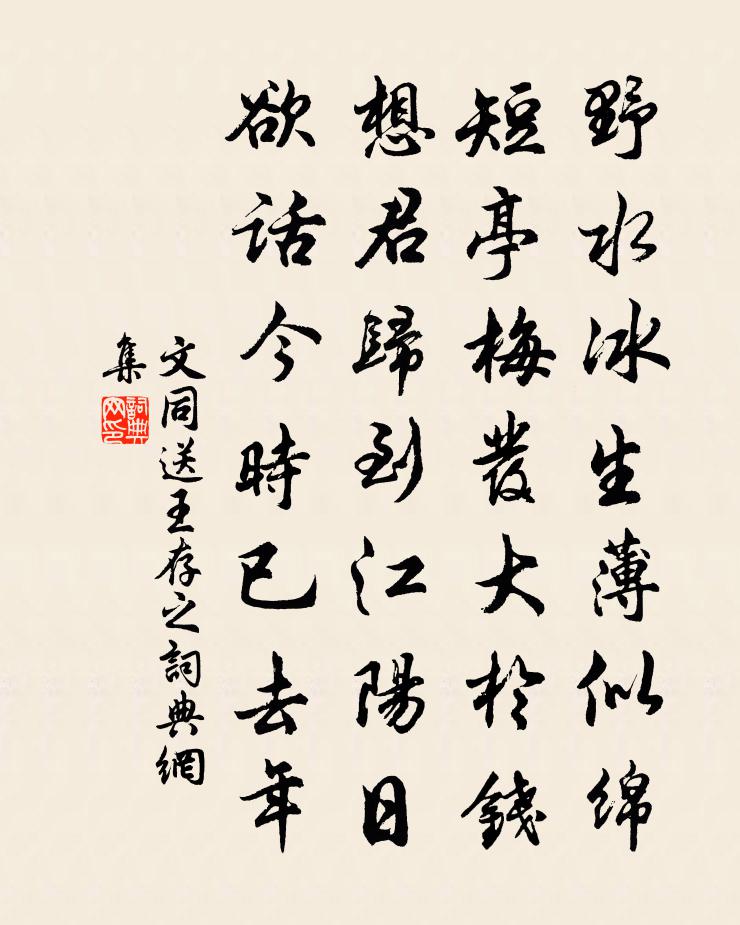 野水冰生薄似綿
短亭梅發大於錢
想君歸到江陽日
欲話今時已去年
文同送王存之詞典網
集
詞典
网印